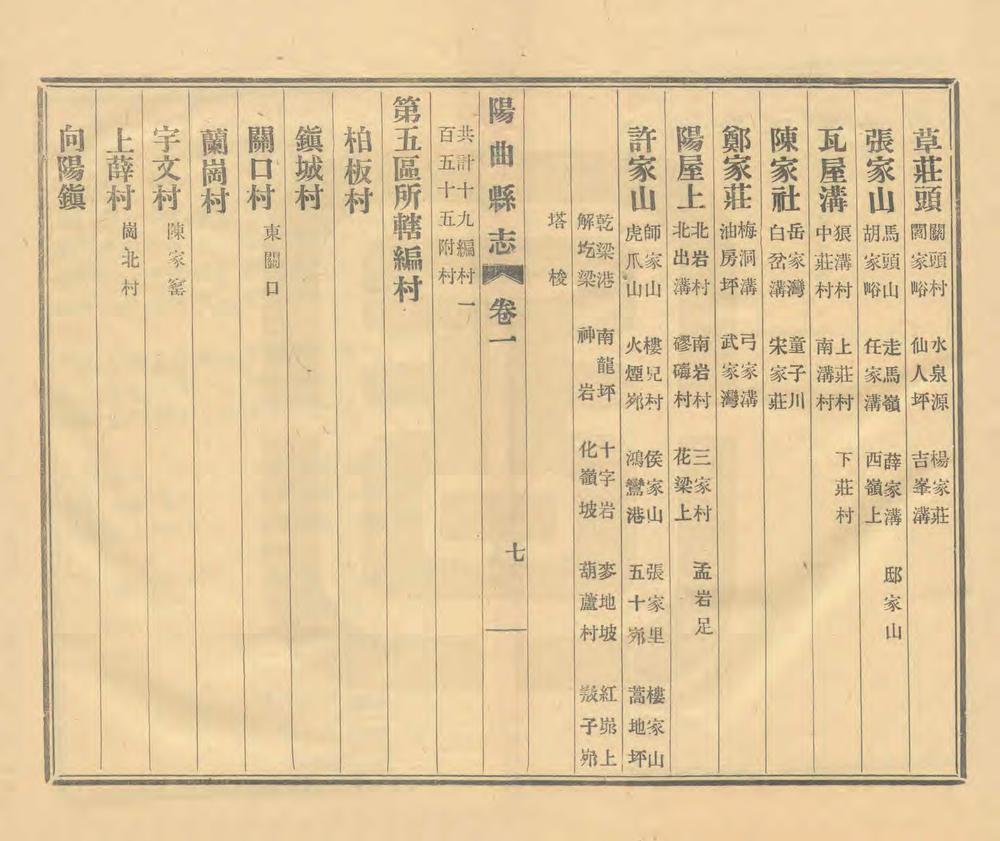 草莊頭
關頭村 水泉源 楊家莊
閻家峪 仙人坪 吉峯溝
張家山
馬頭山 走馬嶺 薛家溝 邸家山
胡家峪 任家溝 西嶺上
瓦屋溝
狼溝村 上莊村 下莊村
中莊村 南溝村
陳家社
岳家灣 童子川
白岔溝 宋家莊
鄭家莊
梅洞溝 弓家溝
油房坪 武家灣
陽屋上
北岩村 南岩村 三家村 孟岩足
北出溝 村 花梁上
許家山
師家山 樓兒村 侯家山 張家里 樓家山
虎爪山 火煙 鴻鸞港 五十 蒿地坪
乾梁港 南龍坪 十字岩 麥地坡 紅 上
解圪梁 神岩 化嶺坡 葫蘆村 子
塔梭
陽曲縣志 卷一 七
共計十九編村一
百五十五附村
第五區所轄編村
柏板村
鎮城村
關口村 東關口
蘭崗村
宇文村 陳家窰
上薛村 崗北村
向陽鎮